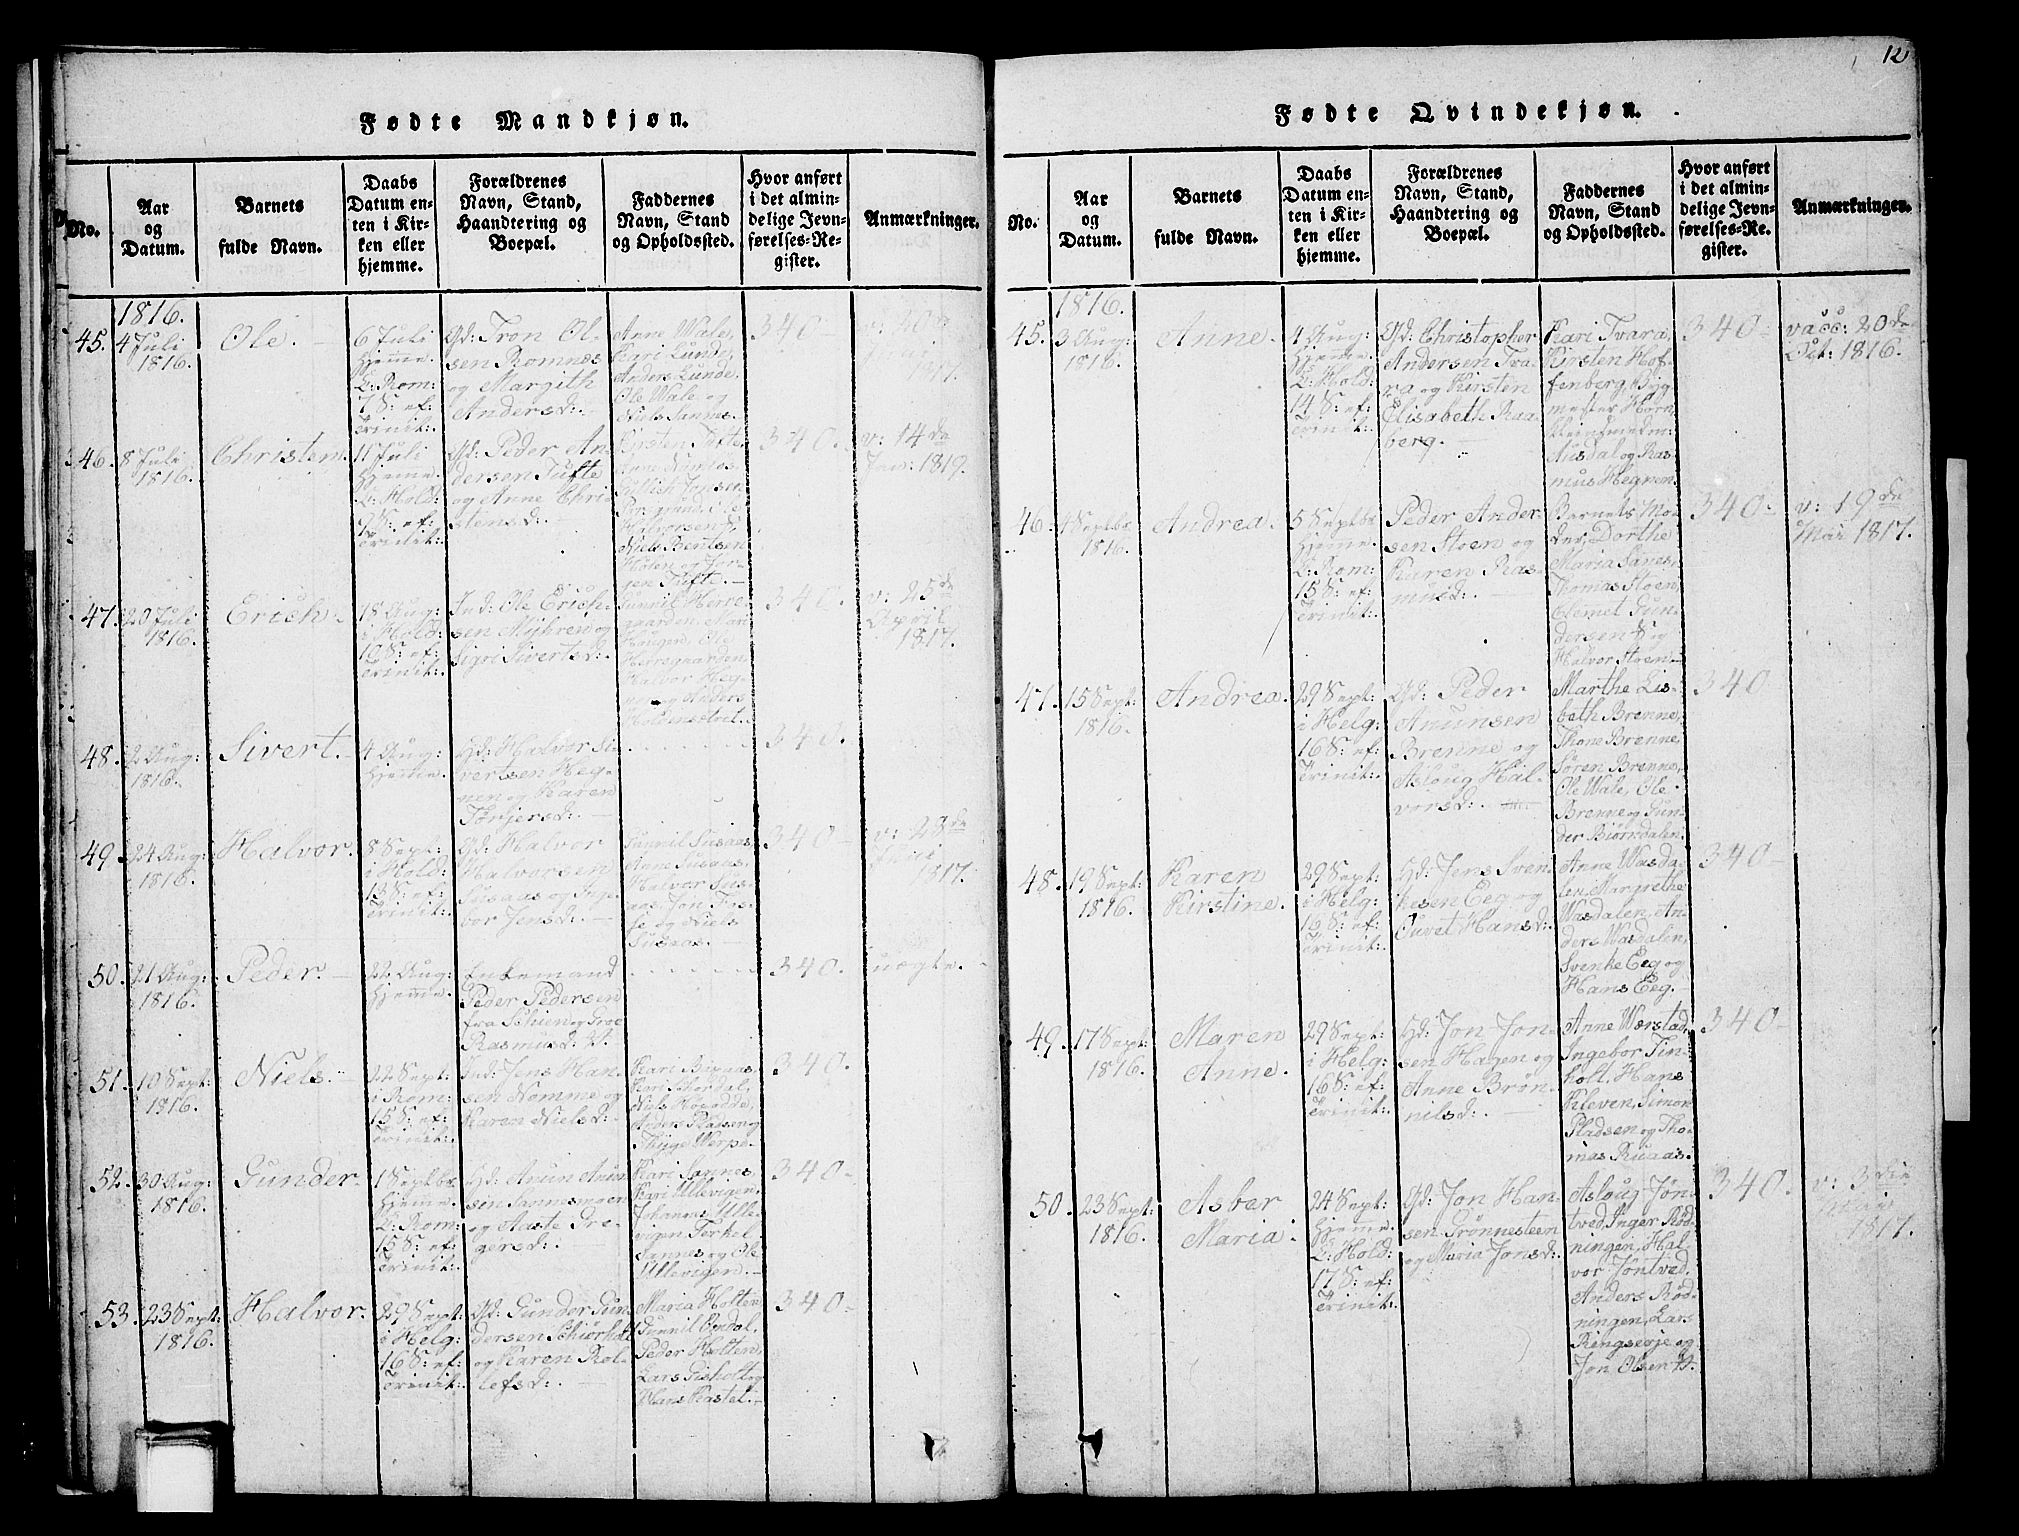 12
Fødte Mandkjøn.
No.
Aar og Datum.
Barnets fulde Navn.
Daabs Datum enten i Kirken eller hjemme.
Forældrenes Navn, Stand, Haandtering og Boepæl.
Faddernes Navn, Stand og Opholdssted.
Hvor anført i det almindelige Jevnførelses-Register.
Anmærkninger.
1816.
45. 4 Juli 1816.
Ole.
6 Juli
hjemme
L: Rom:
7 S: ef:
Trinit:
Gd: Tron Ol-
sen Romnes
og Margith
Andersd:
Anne Wale,
Kari Lunde,
Anders Lunde,
Ole Wale og
Niels Sannes.
340
v: 20
1817.
46. 8 Juli 1816.
Christen.
11 Juli
hjemme.
L: Hold:
7 S: ef:
Trinit:
Gd: Peder An-
dersen Tufte
og Anne Chri-
stensd:
Kirsten Tufte,
Halvorsen
Niels Bentsen
Holen og Jør-
gen Tufte.
340.
v: 14de
Jan: 1819.
47. 20 Juli 1816.
Erich.
18 Aug:
i Hold:
10 S: ef:
Trinit:
Ind: Ole Erich-
sen Myhren og
Sigri Sivertsd:
Gunnil Herre-
gaarden, Mari
Haugen, Ole
Herregaarden,
Halvor Heg-
nen og Anders
340.
v: 25de
April
1817.
48. 2 Aug: 1816.
Sivert.
4 Aug:
hjemme.
Hd: Halvor Si-
vertsen Heg-
nen og Karen
Torjersd:
340.
49. 24 Aug: 1816.
Halvor.
8 Sept:
i Hold:
13 S: ef:
Trinit:
Gd: Halvor
Halvorsen
Susaas og Inge-
bor Jensd:
Gunnil Susaas,
Anne Susaas,
Halvor Sus-
aas, Jon
og Niels
Susaas.
340
v: 28de
1817.
50. 21 Aug: 1816.
Peder.
22 Aug:
hjemme.
Enkemand
Peder Pedersen
fra Schien og
Rasmusd:
340.
uægte.
51. 10 Sept: 1816.
Niels.
22 Sept:
i Rom:
15 S: ef:
Trinit:
Ind: Jens Han-
sen Nomme og
Karen Nielsd:
340.
52. 30 Aug: 1816.
Gunder.
1 Septbr
hjemme
L: Rom:
15 S: ef:
Trinit:
Hd: Anun Anun-
sen Sannesmoen
og Aaste Gre-
gersd:
Kari Sannes,
Kari Ullevigen,
Johannes Ulle-
vigen, Terkel
Sannes og Ole
Ullevigen.
340
53. 23 Sept: 1816.
Halvor.
29 Sept:
i Helg:
16 S: ef:
Trinit:
Gd: Gunder Gun-
dersen Schiørholt
og Karen Rol-
lefsd:
Maria Holten,
Gunnil Omdal,
Peder Holten,
Lars Gisholt og
Hans Kastet.
340
Fødte Qvindekjøn.
No.
Aar og Datum.
Barnets fulde Navn.
Daabs Datum enten i Kirken eller hjemme.
Forældrenes Navn, Stand, Haandtering og Boepæl.
Faddernes Navn, Stand og Opholdssted.
Hvor anført i det almindelige Jevnførelses-Register.
Anmærkninger.
1816.
45. 3 Aug: 1816.
Anne.
4 Aug:
hjemme
L: Hold:
14 S: ef:
Trinit:
Gd: Christopher
Andersen Tva-
ra og Kirsten
Elisabeth Raa-
berg.
Kari Tvara,
Kirsten Hof-
fenberg, Byg-
mester Horn,
Ausdal og Ras-
mus Hegnen.
340
vacc: 20de
Oct: 1816.
46. 4 Septbr 1816.
Andrea.
5 Septbr
hjemme.
L: Rom:
15 S: ef:
Trinit:
Peder Ander-
sen Stoen og
Karen Ras-
musd:
Barnets Mo-
der, Dorthe
Maria Sanes,
Thomas Stoen,
Clemet Gun-
dersen og
Halvor Stoen
340
v: 19de
Mai 1817.
47. 15 Sept: 1816.
Andrea.
29 Sept:
i Helg:
16 S: ef:
Trinit:
Gd: Peder
Anunsen
Brenne og
Asloug Hal-
vorsd:
Marthe Lis-
beth Brenne,
Thone Brenne,
Søren Brenne,
Ole Wale, Ole
Brenne og Gun-
der Biørndalen
340
48. 19 Sept: 1816.
Karen
Kirstine.
29 Sept:
i Helg:
16 S: ef:
Trinit:
Hd: Jens Sven-
kesen Eeg og
Hansd:
Anne Wasda-
len, Margrethe
Wasdalen, An-
ders Wasdalen,
Svenke Eeg og
Hans Eeg.
340
49. 17 Sept: 1816.
Maren
Anne.
29 Sept:
i Helg:
16 S: ef:
Trinit:
Hd: Jon Jon-
sen Hagen og
Anne Brøn-
nelsd:
Anne Wærstad,
Ingebor Tin-
holt, Hans
Kleven, Simon
Pladsen og Tho-
mas Ruaas.
340
50. 23 Sept: 1816.
Asber
Maria.
24 Sept:
hjemme
L: Hold:
17 S: ef:
Trinit:
Gd: Jon Han-
sen Grønnesteen
og Maria Jonsd:
Asloug Jøn-
tved, Inger Rød-
ningen, Hal-
vor Jøntved,
Anders Rød-
ningen, Lars
Ringserje og
Jon Olsen
340.
v: 3die
1817.